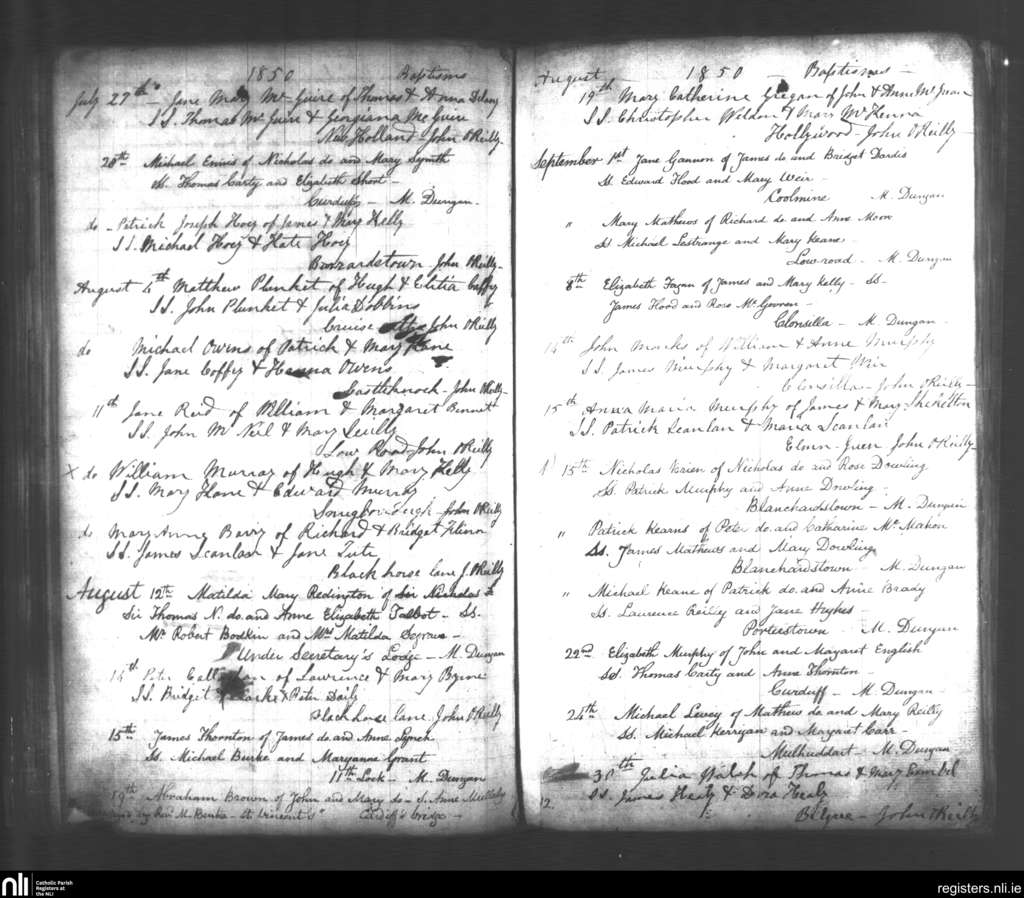 1850 Baptisms
July 27th Jane Mary McGuire of Thomas & Anna Delany
SS. Thomas McGuire & Georgiana McGuire
New Holland John O'Reilly
28th Michael Ennis of Nicholas do and Mary Smyth
SS. Thomas Carty and Elizabeth Short
Curduff - M. Dungan.
do - Patrick Joseph Hoey of James & Mary Kelly
SS. Michael Hoey & Kate Hoey
Buzzardstown John O'Reilly
August 4th Matthew Plunket of Hugh & Elitia Coffey
SS. John Plunket & Julia Dobbins
Cruise John O'Reilly
do Michael Owens of Patrick & Mary Kane
SS. Jane Coffey & Hanna Owens
Castleknock - John O'Reilly
11th Jane Reid of William & Margaret Bennett
SS. John McNeil & Mary
Low Road John O'Reilly
x do William Murray of Hugh & Mary Kelly
SS. Mary Kane & Edward Murray
John O'Reilly
do Mary Anne Barry of Richard & Bridget
SS. James Scanlan & Jane Tuti
Black horse lane J. O'Reilly
August 12th Matilda Mary Redington of Sir Nicholas
Sir Thomas N. do. and Anne Elizabeth Talbot - SS.
Mr Robert Bodkin and Mrs Matilda Segrave -
Under Secretary's Lodge - M. Dungan
14th Peter of Lawrence & Mary Byrne
SS. Bridget Clarke & Peter Daily
Black horse lane John O'Reilly
15th James Thornton of James do. and Anne Lynch
SS. Michael Burke and Maryanne Grant
11th Lock - M. Dungan
19th Abraham Brown of John and Mary do - S. Anne
by Rev. M. Burke - St Vincent's Cardiff's bridge -
August 1850 - Baptisms -
19th Mary Catherine Gregan of John & Anne
SS. Christopher Weldon & Mary McKenna
Hollywood - John O'Reilly
September 1st Jane Gannon of James do and Bridget Dardis
SS. Edward Flood and Mary Weir -
Coolmine M. Dungan
" Mary Mathews of Richard do. and Anne Moon
SS Michael Lestrange and Mary Keane -
Low-road - M. Dungan
8th Elizabeth Fagan of James and Mary Kelly - SS.
James Flood and Rose McGovern -
Clonsilla - M. Dungan -
14th John Marks of William & Anne Murphy
SS James Murphy & Margaret Weir
Clonsilla - John O'Reilly
15th Anna Maria Murphy of James & Mary Skeletton
SS. Patrick Scanlan & Maria Scanlan
John O'Reilly
15th Nicholas of Nicholas do and Rose Dowling
SS. Patrick Murphy and Anne Dowling -
Blanchardstown - M. Dungan
" Patrick Kearns of Peter do. and Catharine McMahon
SS. James Mathews and Mary Dowling
Blanchardstown - M. Dungan
" Michael Keane of Patrick do. and Anne Brady
SS. Laurence Reilly and Jane Hughes -
Porterstown - M. Dungan
22nd Elizabeth Murphy of John and Margaret English
SS. Thomas Carty and Anne Thornton -
Curduff - M. Dungan -
24th Michael Levey of Mathew do. and Mary Reilly
SS. Michael Kerrigan and Margaret Carr -
Mulhuddart - M. Dungan
30th Julia Walsh of Thomas & Mary
SS. James Healy & Dora Healy
12. John O'Reilly
nli Catholic Parish
Registers at
the NLI
registers.nli.ie